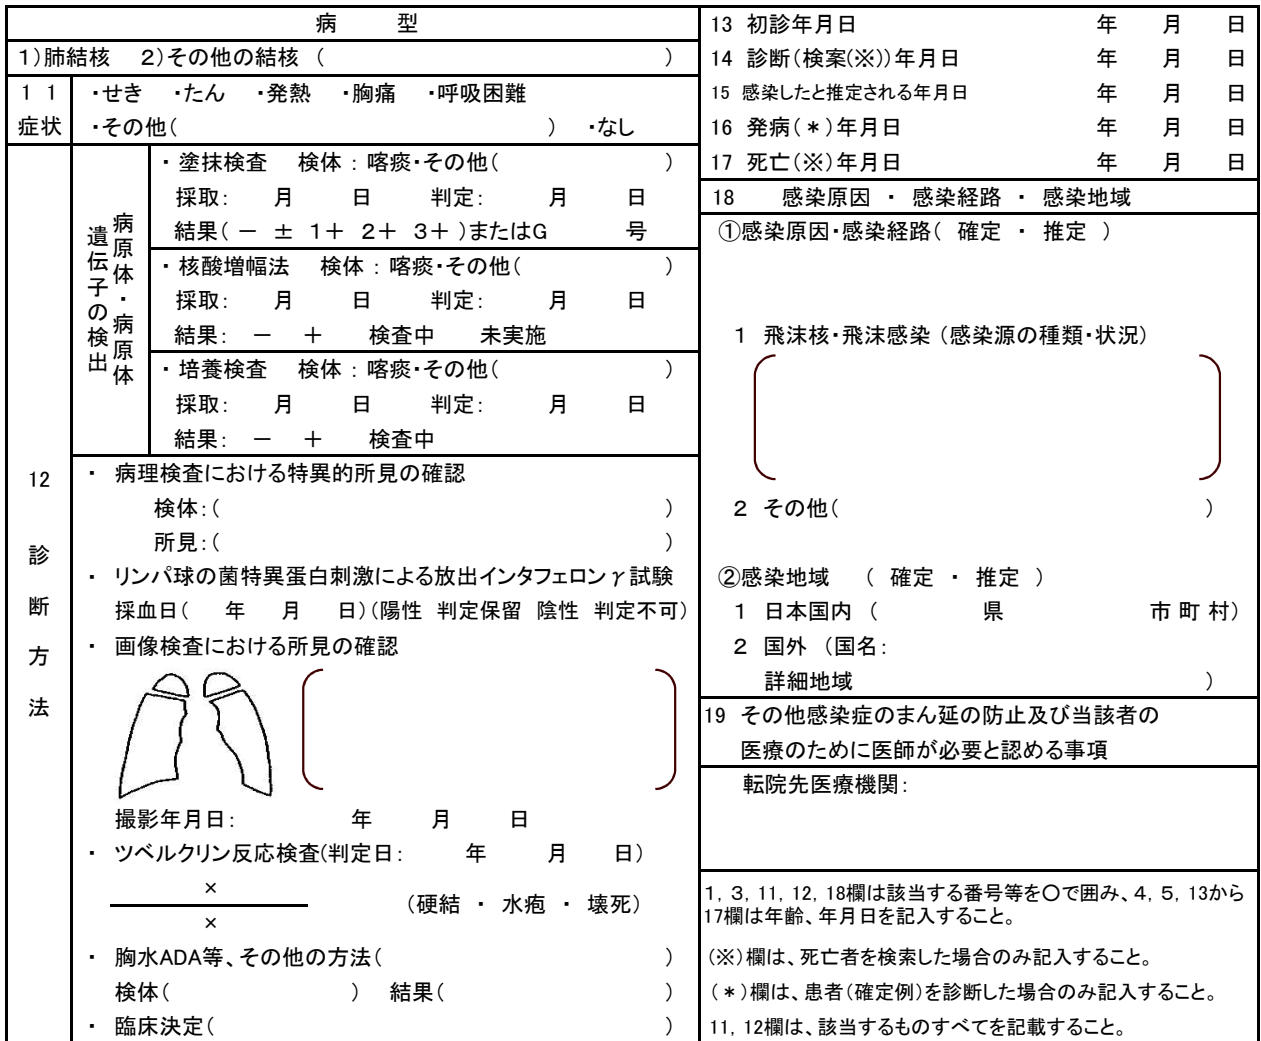 病　　型
1)肺結核　2)その他の結核（　　　　　）
1 1　・せき　・たん　・発熱　・胸痛　・呼吸困難
症状　・その他(　　　　　)　・なし
12 診断方法
病原体・病原体遺伝子の検出
・塗抹検査　検体：喀痰・その他(　　　　　)
採取:　月　日　判定:　月　日
結果( － ± 1＋ 2＋ 3＋ )またはG　号
・核酸増幅法　検体：喀痰・その他(　　　　　)
採取:　月　日　判定:　月　日
結果:　－　＋　検査中　未実施
・培養検査　検体：喀痰・その他(　　　　　)
採取:　月　日　判定:　月　日
結果:　－　＋　検査中
・ 病理検査における特異的所見の確認
検体:(　　　　　)
所見:(　　　　　)
・ リンパ球の菌特異蛋白刺激による放出インタフェロンγ試験
採血日(　年　月　日)(陽性 判定保留 陰性 判定不可)
・ 画像検査における所見の確認
撮影年月日:　年　月　日
・ ツベルクリン反応検査(判定日:　年　月　日)
×
×
(硬結 ・ 水疱 ・ 壊死)
・ 胸水ADA等、その他の方法(　　　　　)
検体(　　　　　)　結果(　　　　　)
・ 臨床決定(　　　　　)
13 初診年月日　年　月　日
14 診断(検案(※))年月日　年　月　日
15 感染したと推定される年月日　年　月　日
16 発病(＊)年月日　年　月　日
17 死亡(※)年月日　年　月　日
18　感染原因 ・ 感染経路 ・ 感染地域
①感染原因・感染経路( 確定 ・ 推定 )
1 飛沫核・飛沫感染（感染源の種類・状況）
2 その他(　　　　　)
②感染地域　( 確定 ・ 推定 )
1 日本国内 (　　県　　市 町 村)
2 国外 (国名:
詳細地域　　　　　)
19 その他感染症のまん延の防止及び当該者の
医療のために医師が必要と認める事項
転院先医療機関:
1, 3, 11, 12, 18欄は該当する番号等を〇で囲み、4, 5, 13から
17欄は年齢、年月日を記入すること。
(※)欄は、死亡者を検索した場合のみ記入すること。
(＊)欄は、患者(確定例)を診断した場合のみ記入すること。
11, 12欄は、該当するものすべてを記載すること。